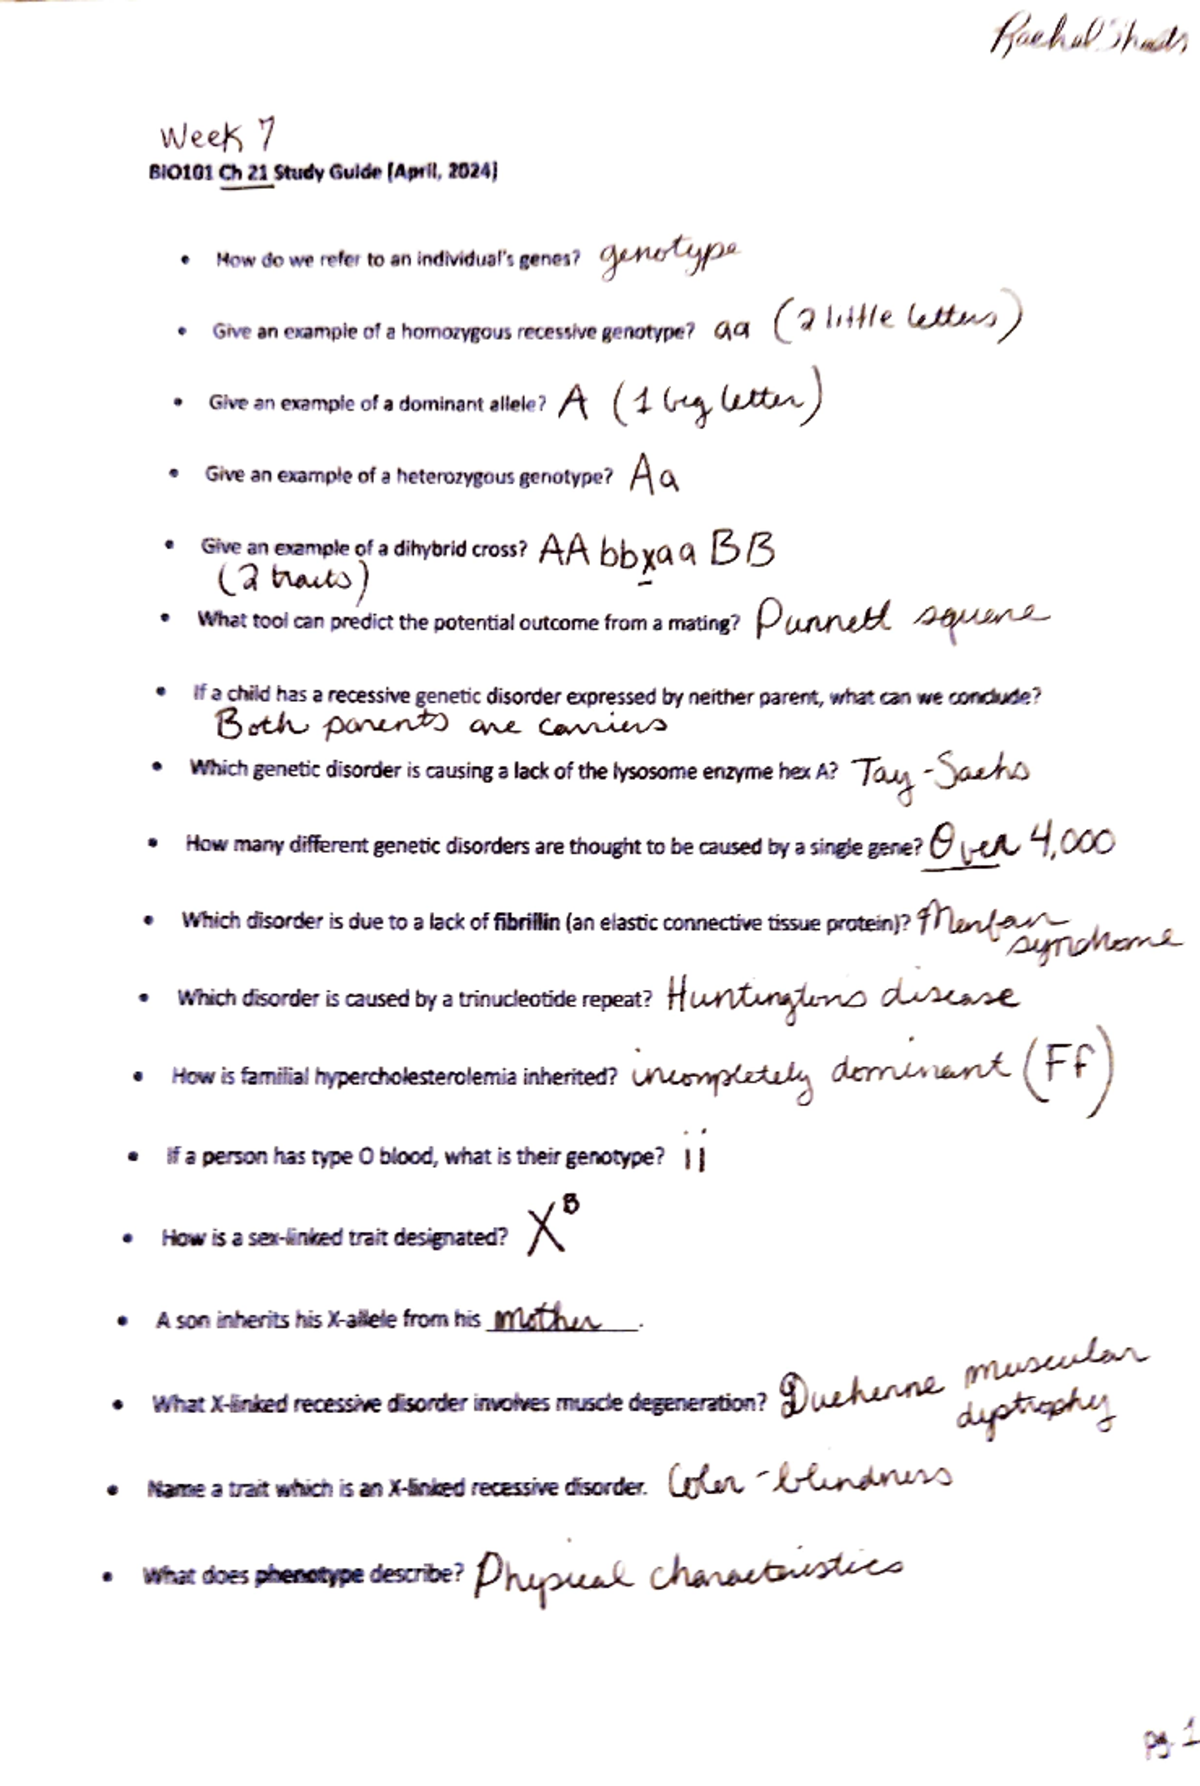 Rachel
Week 7
BIO101 Ch 21 Study Guide (April, 2024)
• How do we refer to an individual's genes? genotype
• Give an example of a homozygous recessive genotype? aa (2 little letters)
• Give an example of a dominant allele? A (1 big letter)
• Give an example of a heterozygous genotype? Aa
• Give an example of a dihybrid cross? AAbbxaaBB
(2 traits)
• What tool can predict the potential outcome from a mating? Punnett square
• If a child has a recessive genetic disorder expressed by neither parent, what can we conclude?
Both parents are carriers
• Which genetic disorder is causing a lack of the lysosome enzyme hex A? Tay-Sachs
• How many different genetic disorders are thought to be caused by a single gene? Over 4,000
• Which disorder is due to a lack of fibrillin (an elastic connective tissue protein)? Menfan
syndrome
• Which disorder is caused by a trinucleotide repeat? Huntingtons disease
• How is familial hypercholesterolemia inherited? incompletely dominant (Ff)
• If a person has type O blood, what is their genotype? ii
• How is a sex-linked trait designated? X^B
• A son inherits his X-allele from his mother.
• What X-linked recessive disorder involves muscle degeneration? Duchenne muscular
dystrophy
• Name a trait which is an X-linked recessive disorder. Color-blindness
• What does phenotype describe? Physical characteristics
pg. 1